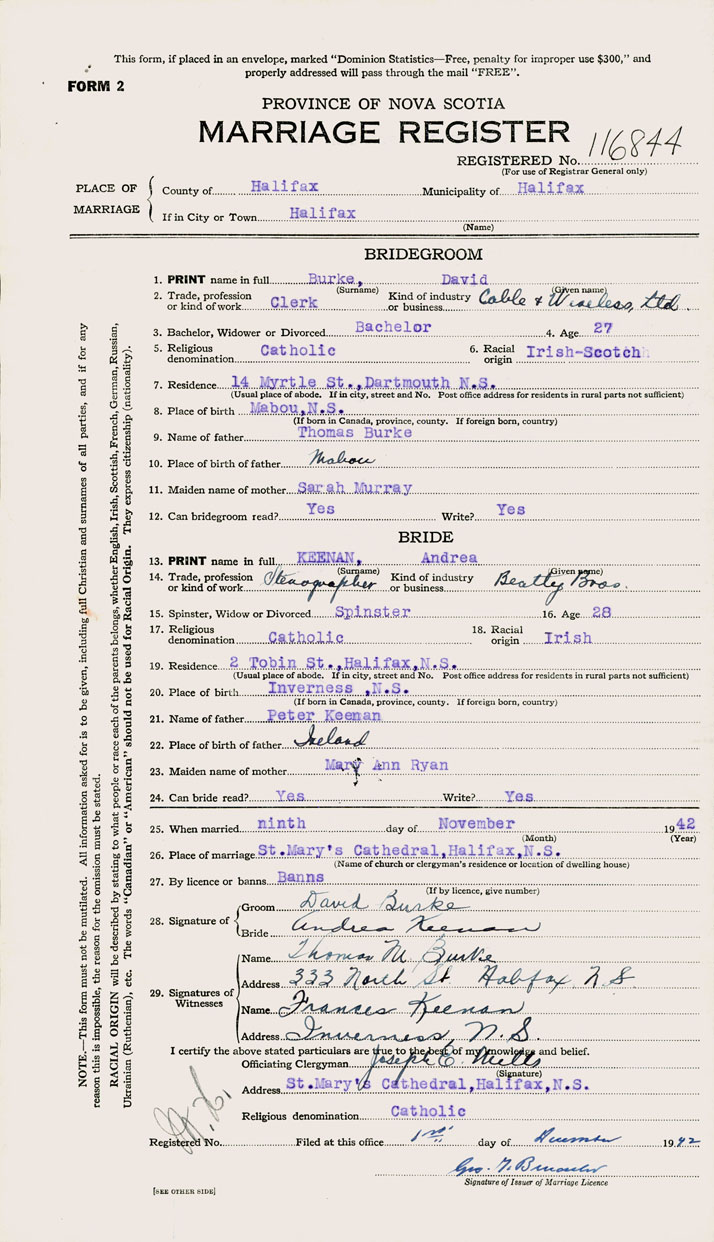 This form, if placed in an envelope, marked "Dominion Statistics—Free, penalty for improper use $300," and
properly addressed will pass through the mail "FREE".
FORM 2
PROVINCE OF NOVA SCOTIA
MARRIAGE REGISTER
REGISTERED No. 116844
(For use of Registrar General only)
PLACE OF MARRIAGE
County of Halifax Municipality of Halifax
If in City or Town Halifax
(Name)
BRIDEGROOM
1. PRINT name in full Burke, David
(Surname) (Given name)
2. Trade, profession or kind of work Clerk Kind of industry or business Cable & Wireless, Ltd.
3. Bachelor, Widower or Divorced Bachelor 4. Age 27
5. Religious denomination Catholic 6. Racial origin Irish-Scotch
7. Residence 14 Myrtle St., Dartmouth N.S.
(Usual place of abode. If in city, street and No. Post office address for residents in rural parts not sufficient)
8. Place of birth Mabou, N.S.
(If born in Canada, province, county. If foreign born, country)
9. Name of father Thomas Burke
10. Place of birth of father Mabou
11. Maiden name of mother Sarah Murray
12. Can bridegroom read? Yes Write? Yes
BRIDE
13. PRINT name in full KEENAN, Andrea
(Surname) (Given name)
14. Trade, profession or kind of work Stenographer Kind of industry or business Beatty Bros.
15. Spinster, Widow or Divorced Spinster 16. Age 28
17. Religious denomination Catholic 18. Racial origin Irish
19. Residence 2 Tobin St., Halifax, N.S.
(Usual place of abode. If in city, street and No. Post office address for residents in rural parts not sufficient)
20. Place of birth Inverness ,N.S.
(If born in Canada, province, county. If foreign born, country)
21. Name of father Peter Keenan
22. Place of birth of father Ireland
23. Maiden name of mother Mary Ann Ryan
24. Can bride read? Yes Write? Yes
25. When married ninth day of November 1942
(Month) (Year)
26. Place of marriage St.Mary's Cathedral, Halifax, N.S.
(Name of church or clergyman's residence or location of dwelling house)
27. By licence or banns Banns
(If by licence, give number)
28. Signature of
Groom David Burke
Bride Andrea Keenan
29. Signatures of Witnesses
Name Thomas M. Burke
Address 333 North St Halifax N S
Name Frances Keenan
Address Inverness, N.S.
I certify the above stated particulars are true to the best of my knowledge and belief.
Officiating Clergyman Joseph E. Mills
(Signature)
Address St.Mary's Cathedral, Halifax, N.S.
Religious denomination Catholic
Registered No. Filed at this office 1st day of December 1942
Geo.
Signature of Issuer of Marriage Licence
[SEE OTHER SIDE]
NOTE.—This form must not be mutilated. All information asked for is to be given, including full Christian and surnames of all parties, and if for any
reason this is impossible, the reason for the omission must be stated.
RACIAL ORIGIN will be described by stating to what people or race each of the parents belongs, whether English, Irish, Scottish, French, German, Russian,
Ukrainian (Ruthenian), etc. The words "Canadian" or "American" should not be used for Racial Origin. They express citizenship (nationality).